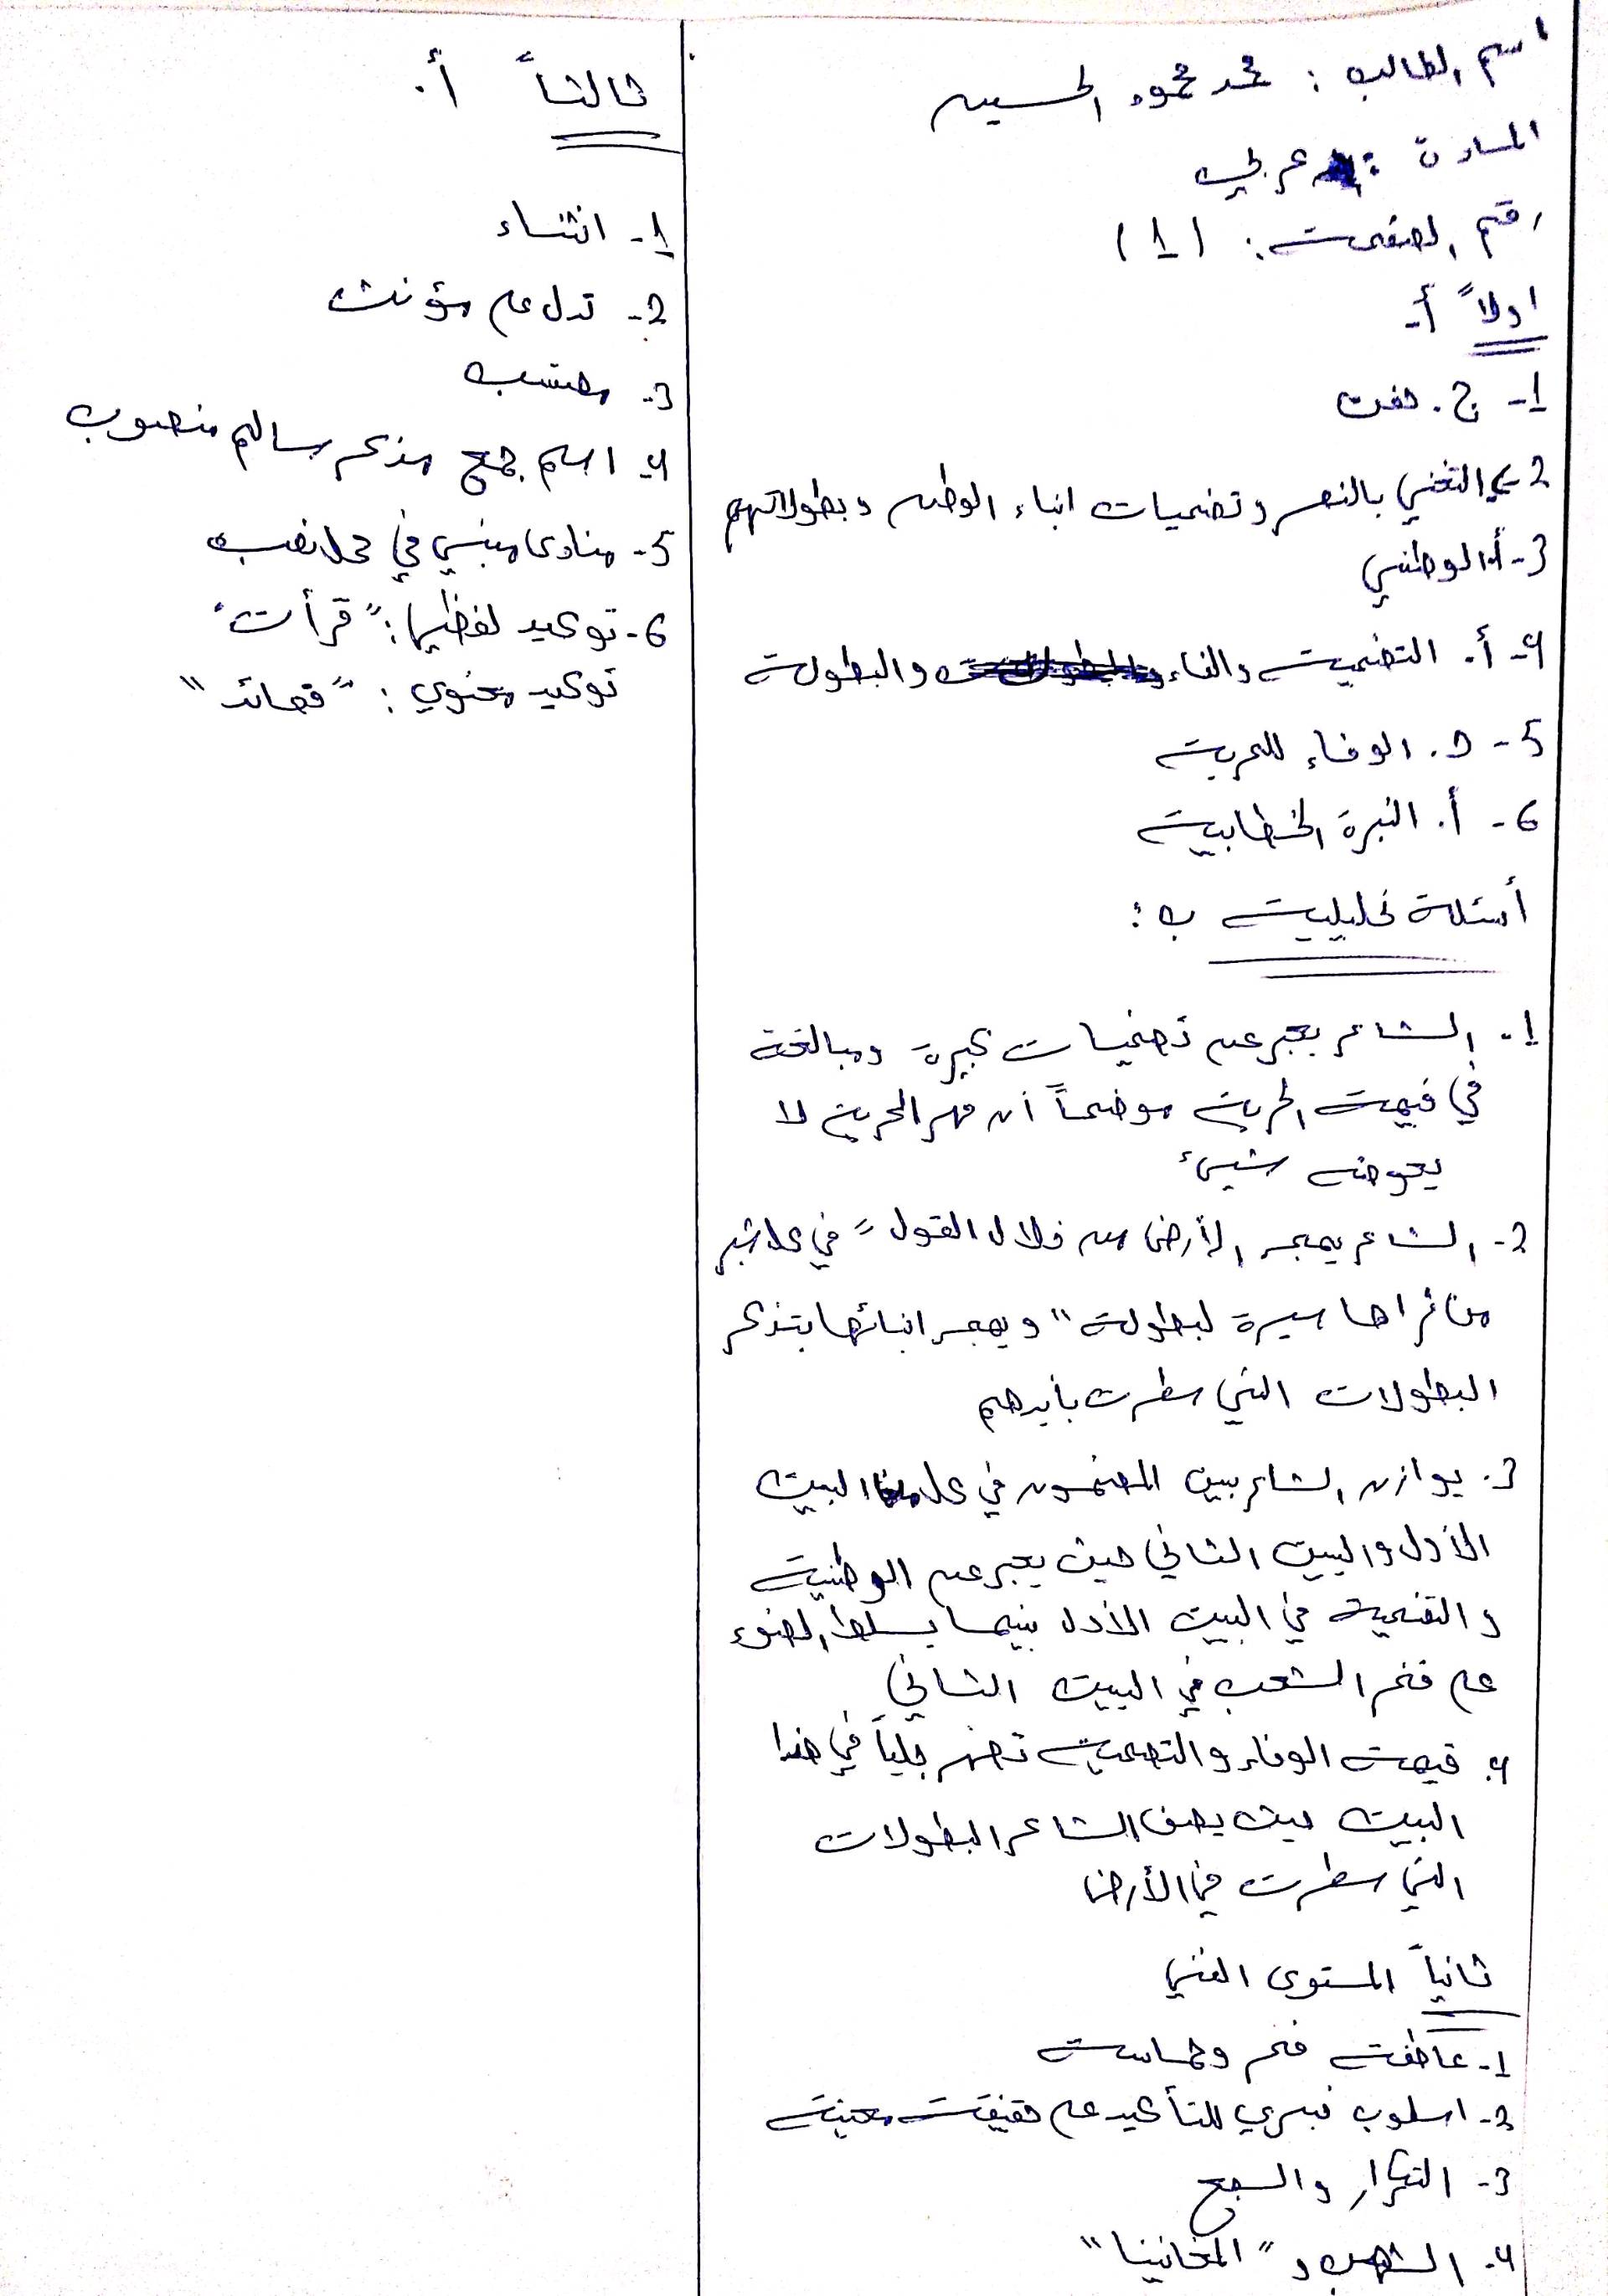 اسم الطالب : محمد محمود الحسين
المادة : عربي
رقم الصفحة : (1)
اولاً أ-
1- ج. خفت
2- التغني بالنصر وتضحيات ابناء الوطن وبطولاتهم
3- أ. الوطني
4- أ. التضحية والفداء والبطولة
5- د. الوفاء للحرية
6- أ. النبرة الخطابية
أسئلة تحليلية ب :
1. الشاعر يعبر عن تضحيات كبيرة ومبالغة
في قيمة الحرية موضحاً أن مهر الحرية لا
يعوضه شيء
2- الشاعر يمجد الأرض من خلال القول "في كل شبر
من ثراها سيرة لبطولة" ويمجد ابنائها بتذكر
البطولات التي سطرت بأيدهم
3. يوازن الشاعر بين المضمون في كل من البيت
الأول والبيت الثاني حيث يعبر عن الوطنية
والتضحية في البيت الأول بينما يسلط الضوء
على فخر الشعب في البيت الثاني
4. قيمة الوفاء والتضحية تظهر جلياً في هذا
البيت حيث يصف الشاعر البطولات
التي سطرت في الأرض
ثانياً المستوى الفني
1- عاطفة فخر وحماسة
2- اسلوب خبري للتأكيد على حقيقة معينة
3- التكرار والسجع
4. و "المغانينا"
ثالثاً أ.
1- انثناء
2- تدل على مؤنث
3- محتسب
4- اسم جمع مذكر سالم منصوب
5- منادى مبني في محل نصب
6- توكيد لفظي : "قرأت"
توكيد معنوي : "قصائد"